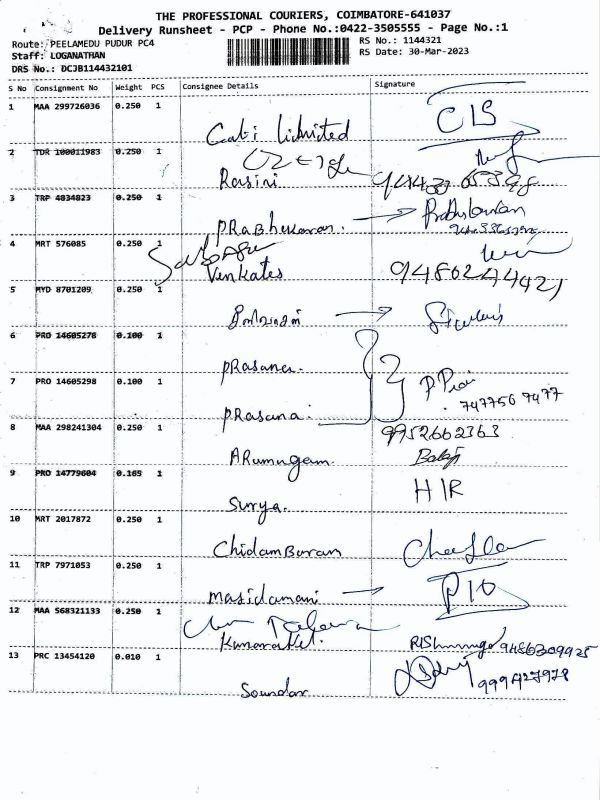 THE PROFESSIONAL COURIERS, COIMBATORE-641037
Delivery Runsheet - PCP - Phone No.:0422-3505555 - Page No.:1
Route: PEELAMEDU PUDUR PC4
RS No.: 1144321
Staff: LOGANATHAN
RS Date: 30-Mar-2023
DRS No.: DCJB114432101
S No Consignment No Weight PCS Consignee Details Signature
1 MAA 299726036 0.250 1
CIS
Limited
2 TDR 100011983 0.250 1
Rasini
3 TRP 4834823 0.250 1
PRaBhakaran.
4 MRT 576085 0.250 1
Venkates
9486244421
5 MYD 8701209 0.250 1
6 PRO 14605278 0.100 1
PRasana.
7 PRO 14605298 0.100 1
7477567477
PRasana.
8 MAA 298241304 0.250 1
9952662363
ARumugam.
Balaji
9 PRO 14779604 0.165 1
HIR
Surya.
10 MRT 2017872 0.250 1
ChidamBaran
11 TRP 7971053 0.250 1
masidamani
P10
12 MAA 568321133 0.250 1
9486309925
13 PRC 13454120 0.010 1
Soundar